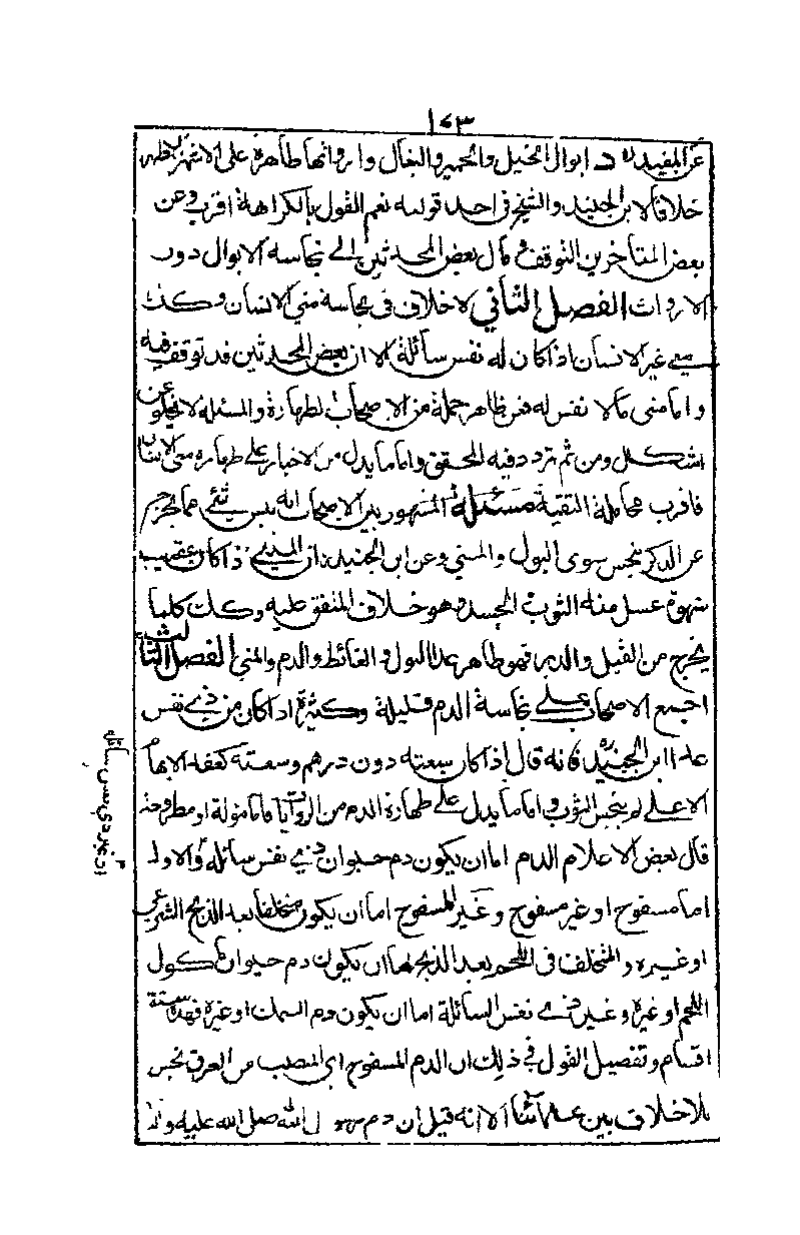 ١٧٣
عن المفيد ره د ابوال الخيل والحمير والبغال وارواثها طاهرة على الاشهر الاظهر
خلافا لابن الجنيد والشيخ في احد قوليه نعم القول بالكراهة اقرب وعن
بعض المتاخرين التوقف و مال بعض المحدثين الى نجاسة الابوال دون
الارواث الفصل الثاني لا خلاف في نجاسة مني الانسان وكذلك
مني غير الانسان اذا كان له نفس سائلة الا ان بعض المحدثين قد توقف فيه
واما مني ما لا نفس له فمن ظاهر جملة من الاصحاب الطهارة والمسئلة لا تخلو عن
اشكال ومن ثم تردد فيه المحقق واما ما يدل من الاخبار على طهارة مني الانسان
فاقرب محامله التقية مسئلة المشهور بين الاصحاب انه ليس شئ مما يخرج
عن الذكر بنجس سوى البول والمني وعن ابن الجنيد ان المذي اذا كان عقيب
شهوة غسل منه الثوب و الجسد وهو خلاف المتفق عليه وكذلك كلما
يخرج من القبل والدبر فهو طاهر عدا البول و الغائط والدم والمني الفصل الثالث
اجمع الاصحاب على نجاسة الدم قليله وكثيره اذا كان من ذي نفس
عدا ابن الجنيد ره فانه قال اذا كان سعته دون درهم وسعته كعقد الابهام
الاعلى لم ينجس الثوب واما ما يدل على طهارة الدم من الروايات فاما مؤلة او مطروحة
قال بعض الاعلام الدم اما ان يكون دم حيوان ذي نفس سائلة او لا والاول
اما مسفوح او غير مسفوح وغير المسفوح اما ان يكون متخلفا بعد الذبح الشرعي
او غيره والمتخلف في اللحم بعد الذبح اما ان يكون دم حيوان ماكول
اللحم او غيره وغير ذي نفس السائلة اما ان يكون دم السمك او غيره فهذه ستة
اقسام وتفصيل القول في ذلك ان الدم المسفوح اي المنصب من العرق نجس
بلا خلاف بين علمائنا الا انه قيل ان دم رسول الله صلى الله عليه واله